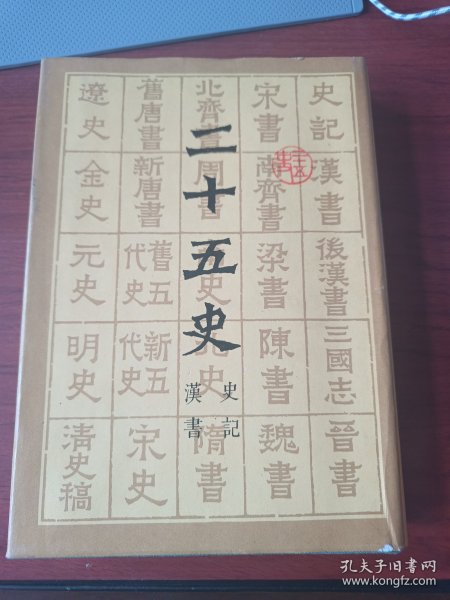 二十五史
史記
漢書
史記
漢書
後漢書
三國志
晉書
宋書
南齊書
梁書
陳書
魏書
北齊書
周書
史
北史
隋書
舊唐書
新唐書
舊五代史
新五代史
宋史
遼史
金史
元史
明史
清史稿
孔夫子旧书网
www.kongfz.com